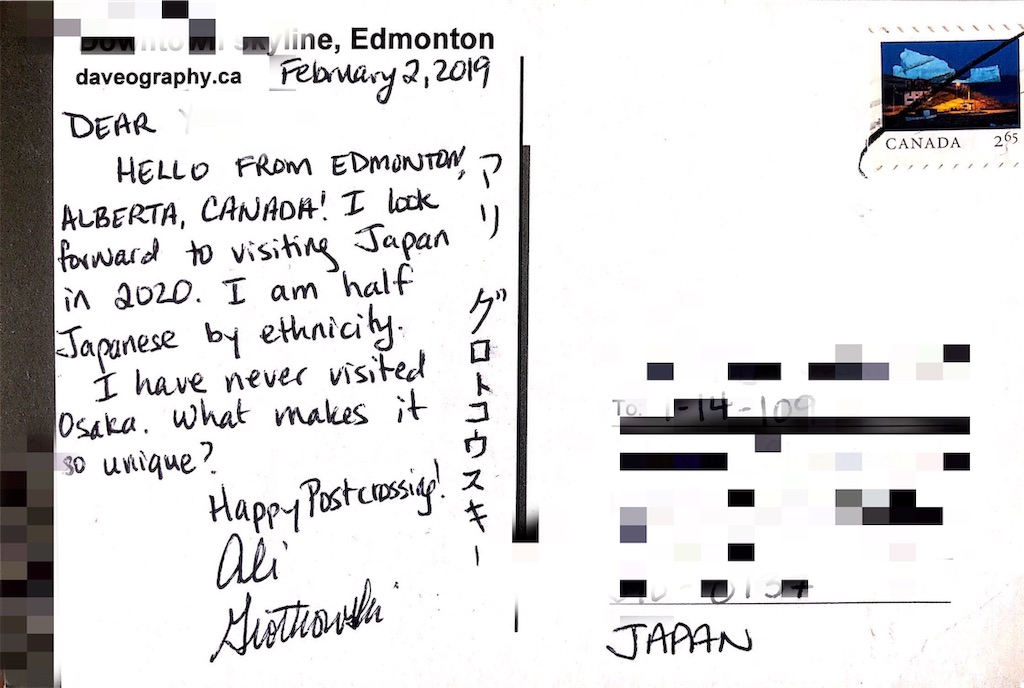 Downtown Skyline, Edmonton
daveography.ca
February 2, 2019
DEAR
HELLO FROM EDMONTON,
ALBERTA, CANADA! I look
forward to visiting Japan
in 2020. I am half
Japanese by ethnicity.
I have never visited
Osaka. What makes it
so unique?
Happy Postcrossing!
Ali
アリ
グロトコウスキー
CANADA 2⁶⁵
To:
1-14-109
JAPAN